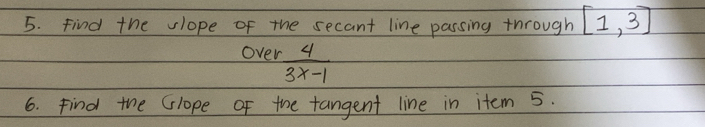 5. Find the slope of the secant line passing through [1,3]
Over 4
3x-1
6. Find the Glope of the tangent line in item 5.